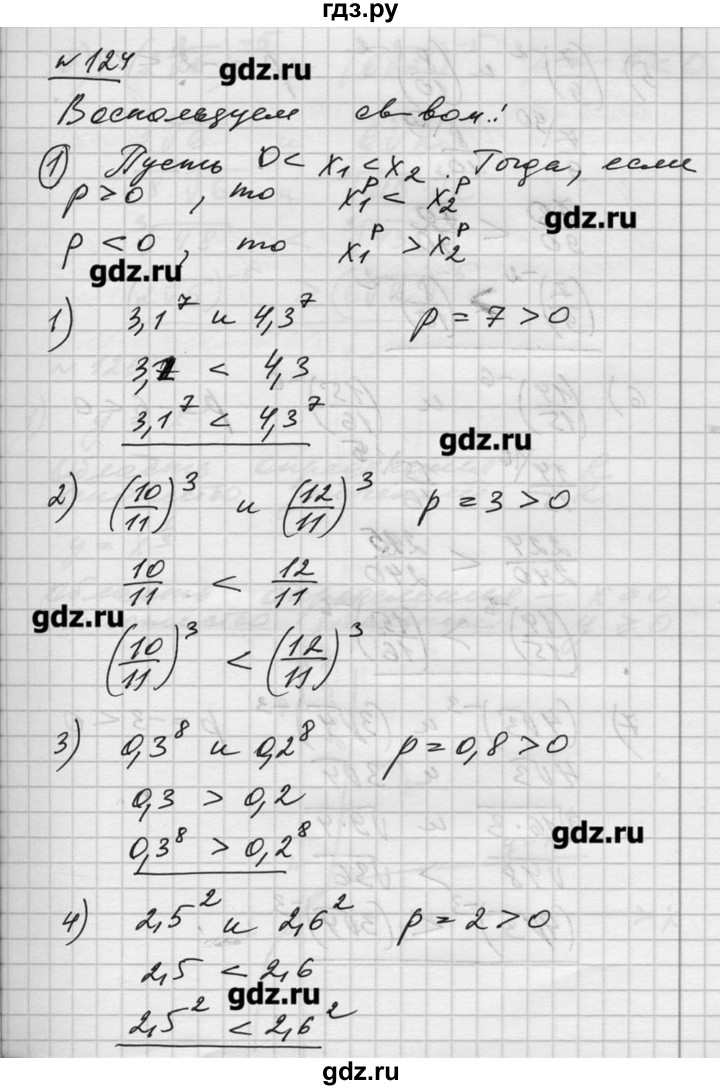 гдз.ру
№ 124
gdz.ru
Воспользуем св-вом:
① Пусть 0 < x₁ < x₂. Тогда, если
p > 0, то x₁ᵖ < x₂ᵖ
gdz.ru
p < 0, то x₁ᵖ > x₂ᵖ
gdz.ru
1) 3,1⁷ и 4,3⁷ p = 7 > 0
3,1 < 4,3
3,1⁷ < 4,3⁷
gdz.ru
2) (10/11)³ и (12/11)³ p = 3 > 0
10/11 < 12/11
gdz.ru
(10/11)³ < (12/11)³
3) 0,3⁸ и 0,2⁸ p = 0,8 > 0
0,3 > 0,2
0,3⁸ > 0,2⁸
gdz.ru
4) 2,5² и 2,6² p = 2 > 0
2,5 < 2,6
gdz.ru
2,5² < 2,6²
gdz.ru